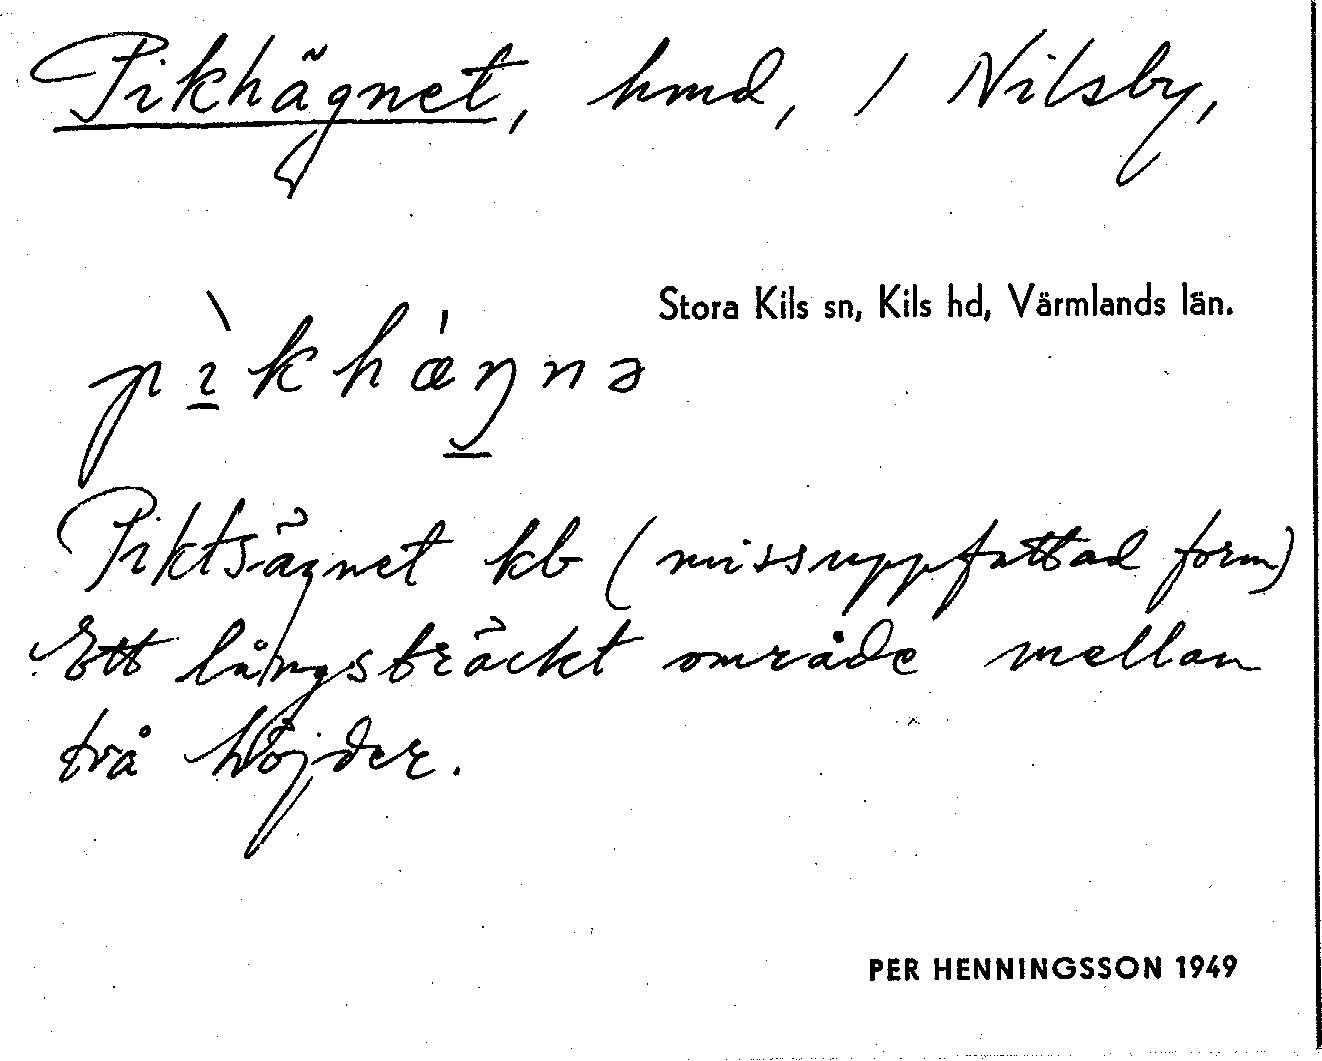 Pikhägnet, hmd, / Nilsby,
Stora Kils sn, Kils hd, Värmlands län.
pìkhǽŋnə
Piktsägnet kb (missuppfattad form)
Ett långsträckt område mellan
två höjder.
PER HENNINGSSON 1949